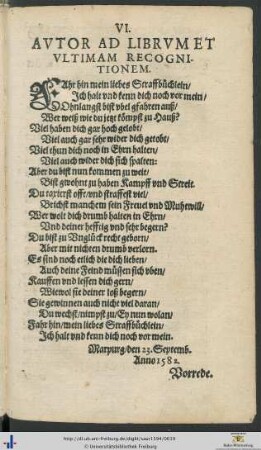 VI.
AVTOR AD LIBRVM ET
VLTIMAM RECOGNI-
TIONEM.
FAhr hin mein liebes Straffbüchlein/
Ich halt vnd kenn dich noch vor mein/
Ohnlangst bist vbel gfahren auß/
Wer weiß wie du jetzt kömpst zu Hauß?
Viel haben dich gar hoch gelobt/
Viel auch gar sehr wider dich getobt/
Viel thun dich noch in Ehrn halten/
Viel auch wider dich sich spalten:
Aber du bist nun kommen zu weit/
Bist gwohnt zu haben Kampff vnd Streit.
Du taxierst offt/vnd straffest viel/
Brichst manchem sein Freuel vnd Muhtwill/
Wer wolt dich drumb halten in Ehrn/
Vnd deiner hefftig vnd sehr begern?
Du bist zu Vnglück recht geborn/
Aber mit nichten drumb verlorn.
Es sind noch etlich die dich lieben/
Auch deine Feind müssen sich vben/
Kauffen vnd lessen dich gern/
Wiewol sie deiner loß begern/
Sie gewinnen auch nicht viel daran/
Du wechst/nimpst zu/Ey nun wolan/
Fahr hin/mein liebes Straffbüchlein/
Ich halt vnd kenn dich noch vor mein.
Marpurg/den 23. Septemb.
Anno 1582.
Vorrede.